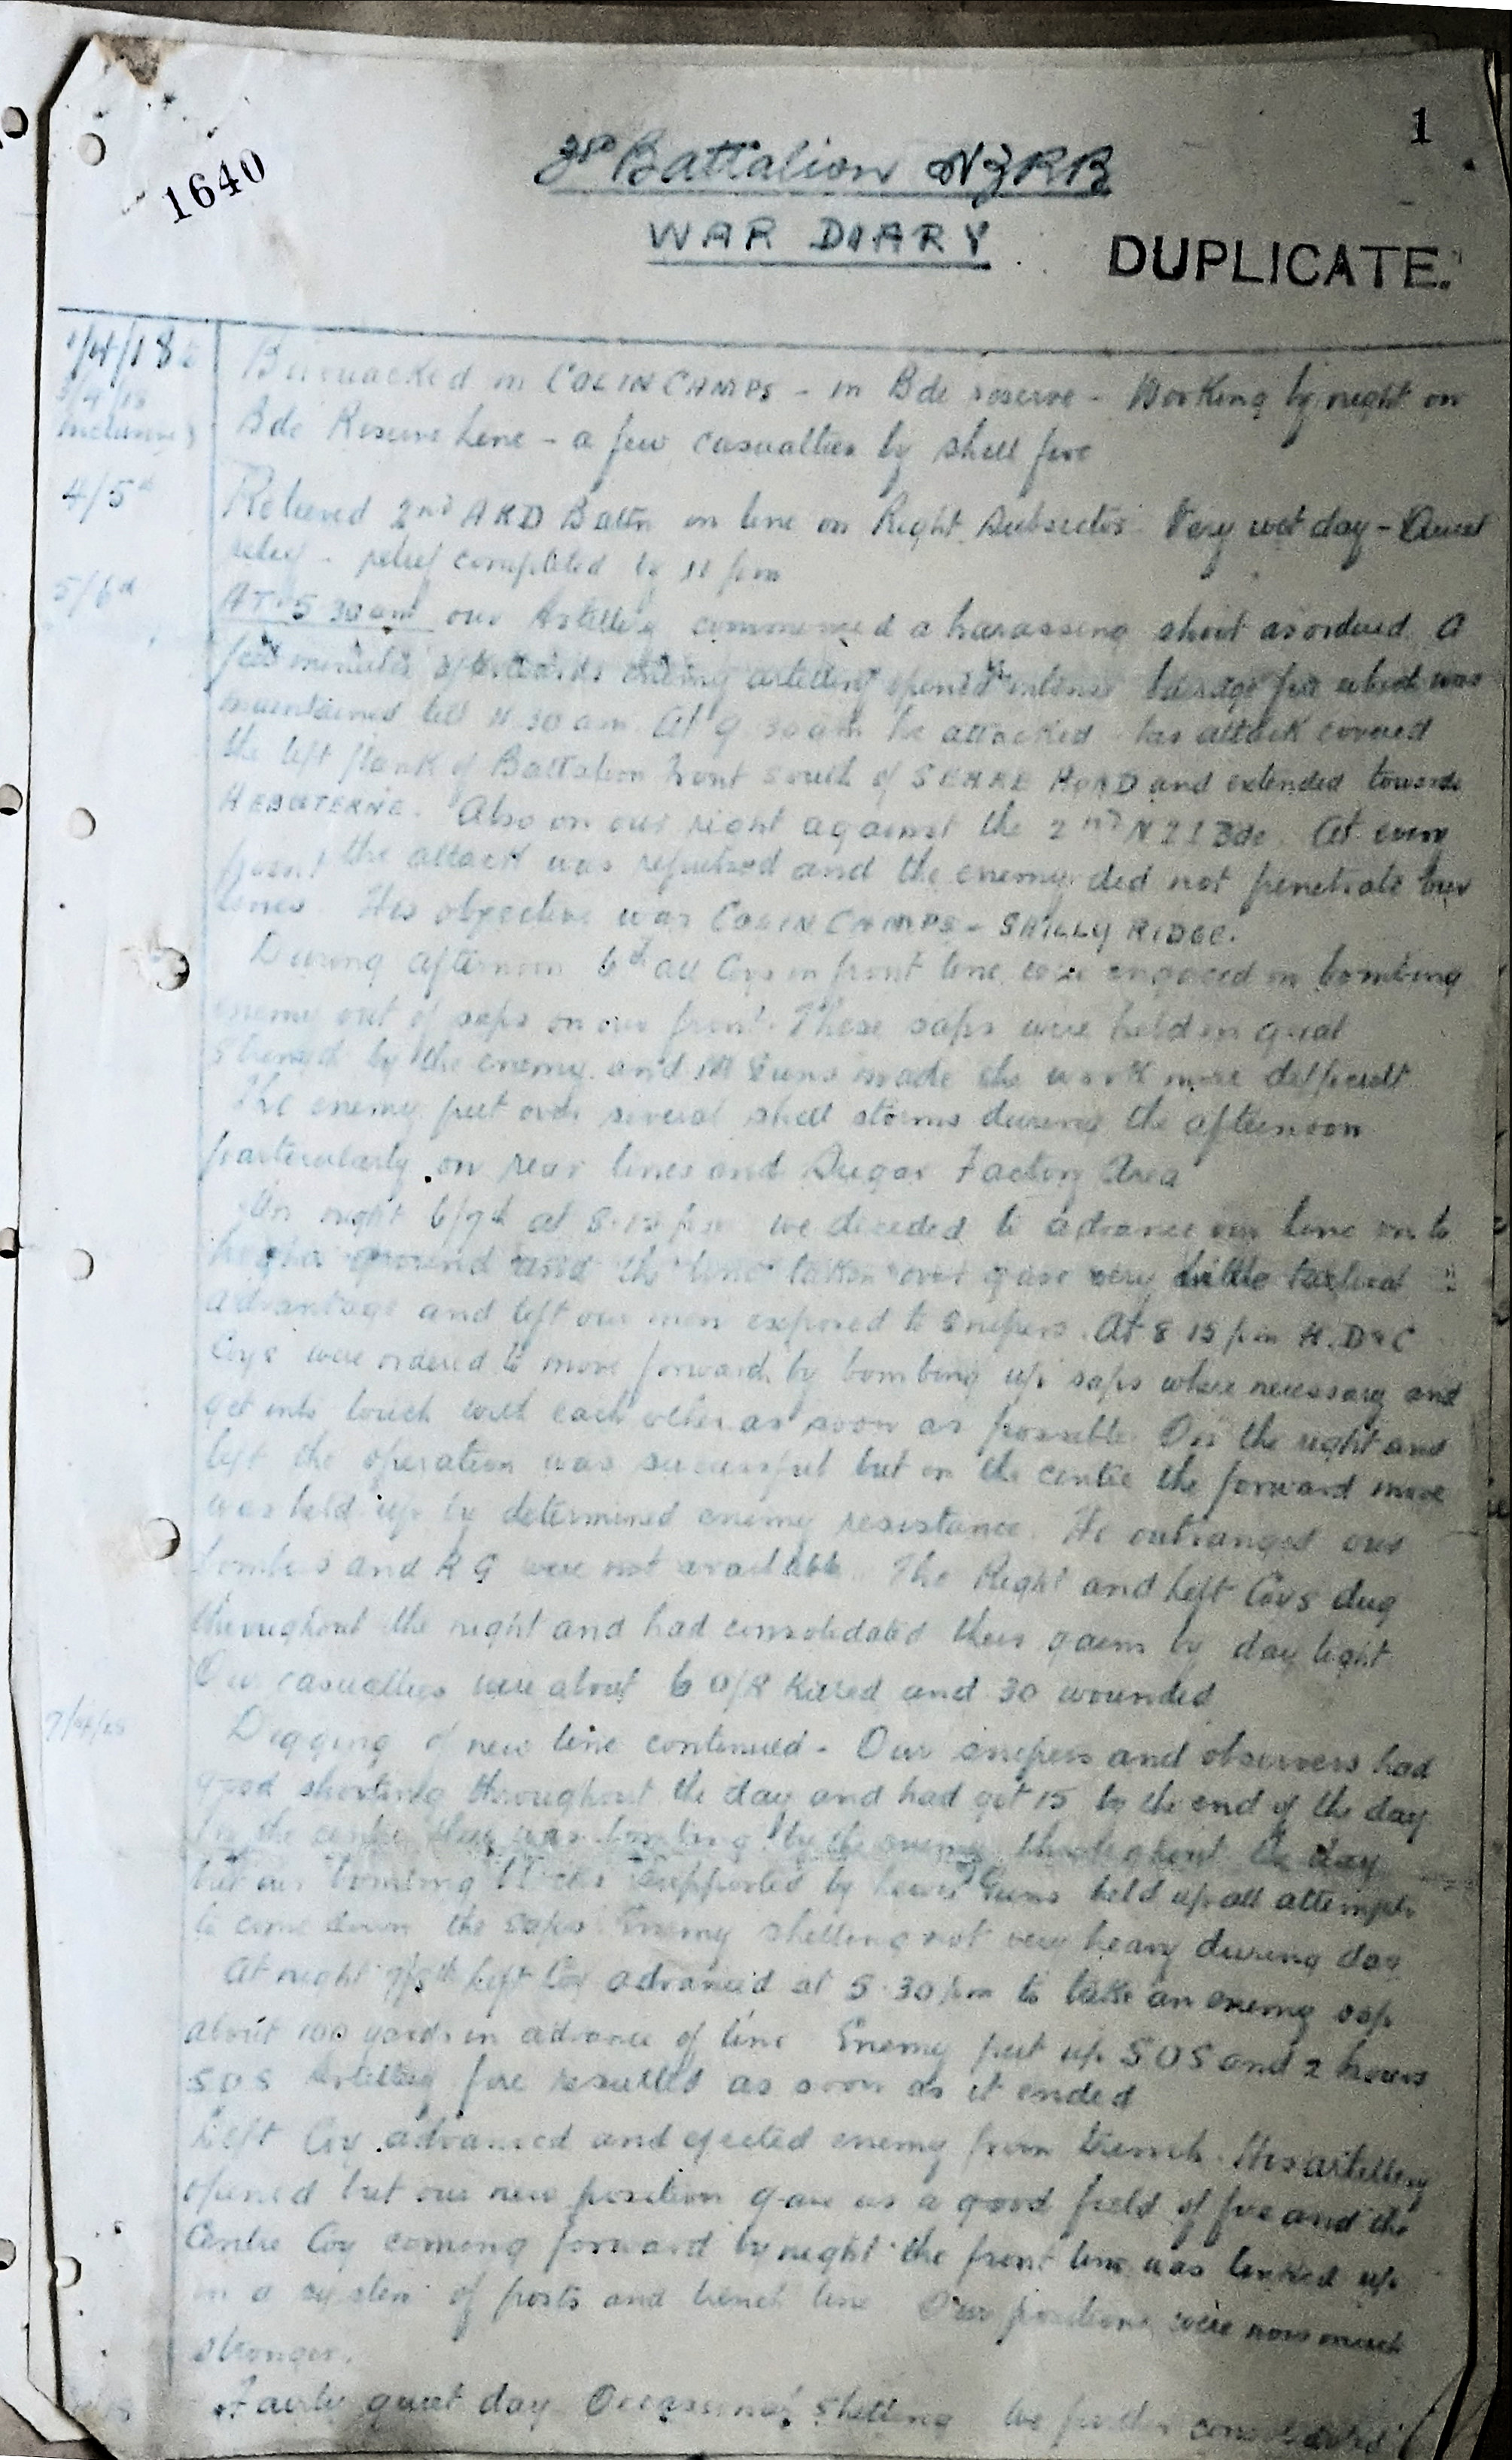 1
1640
3RD Battalion NZRB
WAR DIARY
DUPLICATE.
1/4/18 to
3/4/18
inclusive)
Bivouacked in COLINCAMPS - in Bde reserve - Working by night on
Bde Reserve Line - a few casualties by shell fire
4/5th
Relieved 2nd AKD Battn in line on Right Subsector. Very wet day - Quiet
relief - relief completed by 11 pm
5/6th
AT 5 30 am our Artillery commenced a harassing shoot as ordered. A
few minutes afterwards enemy artillery opened intense barrage fire which was
maintained till 11.30 am. At 9.30 am he attacked - his attack covered
the left flank of Battalion front south of SERRE ROAD and extended towards
HEBUTERNE. Also on our right against the 2nd NZI Bde. At every
point the attack was repulsed and the enemy did not penetrate our
lines. His objective was COLINCAMPS - SAILLY RIDGE.
During afternoon 6th all Coys in front line were engaged in bombing
enemy out of saps on our front. These saps were held in great
strength by the enemy and M Guns made the work more difficult
The enemy put over several shell storms during the afternoon
particularly on rear lines and Sugar Factory Area
On night 6/7th at 8.15 pm we decided to advance our line on to
higher ground and the line taken over gave very little tactical
advantage and left our men exposed to snipers. At 8 15 pm D & C
Coys were ordered to move forward by bombing up saps where necessary and
get into touch with each other as soon as possible. On the right and
left the operation was successful but in the centre the forward move
was held up by determined enemy resistance. He outranged our
bombs and RG were not available. The Right and Left Coys dug
throughout the night and had consolidated their gains by day light.
Our casualties were about 6 O/R killed and 30 wounded
7/4/18
Digging of new line continued - Our snipers and observers had
good shooting throughout the day and had got 15 by the end of the day
In the centre there was bombing by the enemy throughout the day
but our bombing supported by Lewis Guns held up all attempts
to come down the saps. Enemy shelling not very heavy during day
At night 7/8th Left Coy advanced at 5.30 pm to take an enemy sap
about 100 yards in advance of line Enemy put up SOS and 2 hours
SOS Artillery fire resulted as soon as it ended
Left Coy advanced and ejected enemy from trench. His artillery
opened but our new position gave us a good field of fire and the
Centre Coy coming forward by night the front line was linked up
in a system of posts and trench line. Our positions were now much
stronger.
Fairly quiet day Occasional shelling We further consolidated